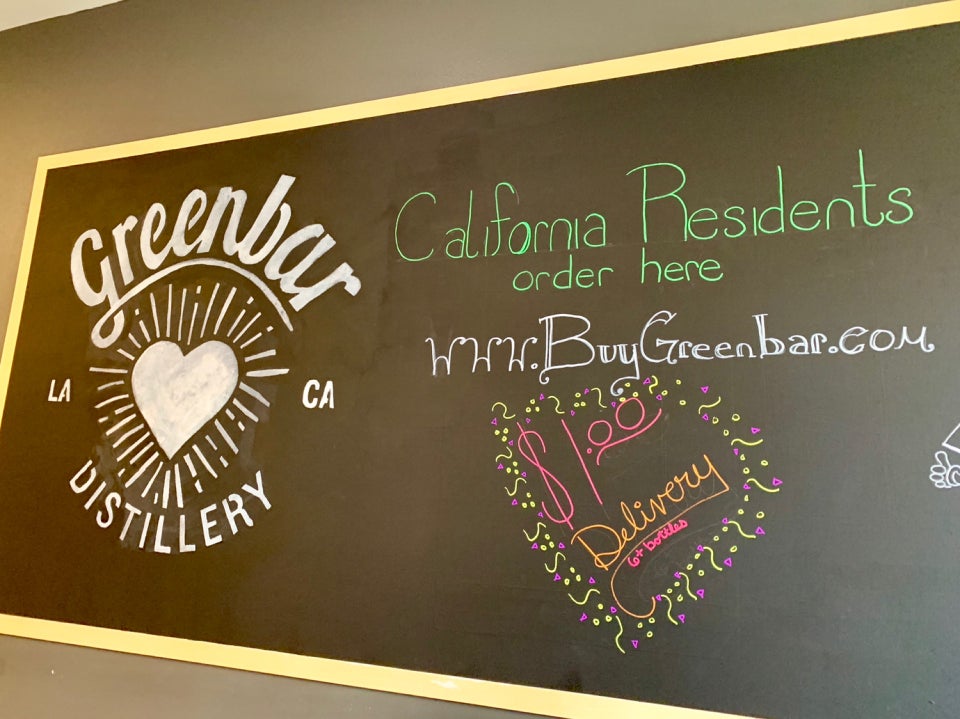 Greenbar
LA CA
DISTILLERY
California Residents
order here
www.BuyGreenbar.com
$1.00
Delivery
6+ bottles